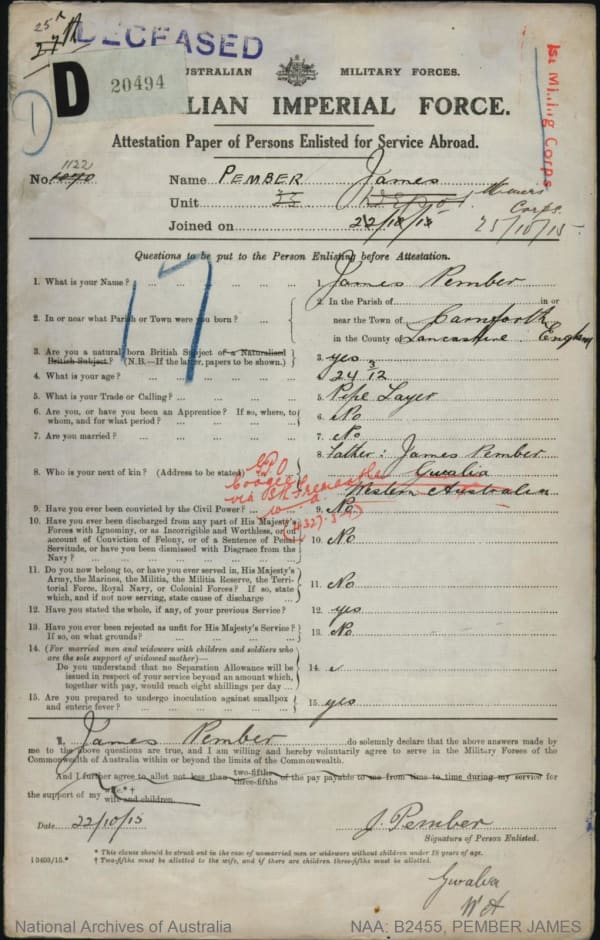 25th
27th
DECEASED
D 20494
AUSTRALIAN MILITARY FORCES.
1st Mining Corps
LIAN IMPERIAL FORCE.
Attestation Paper of Persons Enlisted for Service Abroad.
1122
No. Name PEMBER James
Unit 33 Depot Miners Corps.
Joined on 22/10/15 25/10/15
Questions to be put to the Person Enlisting before Attestation.
17
1. What is your Name? ... 1. James Pember
2. In or near what Parish or Town were you born? ... 2. In the Parish of in or
near the Town of Carnforth
in the County of Lancashire England
3. Are you a natural born British Subject or a Naturalised 3. yes
British Subject? (N.B.—If the latter, papers to be shown.)
4. What is your age? ... 4. 24 3/12
5. What is your Trade or Calling? ... 5. Pipe Layer
6. Are you, or have you been an Apprentice? If so, where, to 6. No
whom, and for what period? ...
7. Are you married? ... 7. No
8. Who is your next of kin? (Address to be stated) 8. Father: James Pember
Gwalia
Western Australia
GPO
Coogee
via Sth Fremantle
9. Have you ever been convicted by the Civil Power? ... 9. No
10. Have you ever been discharged from any part of His Majesty's 10. No
Forces with Ignominy, or as Incorrigible and Worthless, or on
account of Conviction of Felony, or of a Sentence of Penal
Servitude, or have you been Dismissed with Disgrace from the
Navy? ...
11. Do you now belong to, or have you ever served in, His Majesty's 11. No
Army, the Marines, the Militia, the Militia Reserve, the Terri-
torial Force, Royal Navy, or Colonial Forces? If so, state
which, and if not now serving, state cause of discharge ...
12. Have you stated the whole, if any, of your previous Service? 12. yes
13. Have you ever been rejected as unfit for His Majesty's Service? 13. No
If so, on what grounds? ...
14. (For married men and widowers with children and soldiers who 14.
are the sole support of widowed mother)—
Do you understand that no Separation Allowance will be
issued in respect of your service beyond an amount which,
together with pay, would reach eight shillings per day ...
15. Are you prepared to undergo inoculation against smallpox 15. yes
and enteric fever? ...
I, James Pember do solemnly declare that the above answers made by
me to the above questions are true, and I am willing and hereby voluntarily agree to serve in the Military Forces of the
Commonwealth of Australia within or beyond the limits of the Commonwealth.
And I further agree to allot not less than two-fifths three-fifths of the pay payable to me from time to time during my service for
the support of my wife.*† wife and children.
Date 22/10/15 J. Pember
Signature of Person Enlisted.
* This clause should be struck out in the case of unmarried men or widowers without children under 18 years of age.
† Two-fifths must be allotted to the wife, and if there are children three-fifths must be allotted.
Gwalia
W A
National Archives of Australia NAA: B2455, PEMBER JAMES